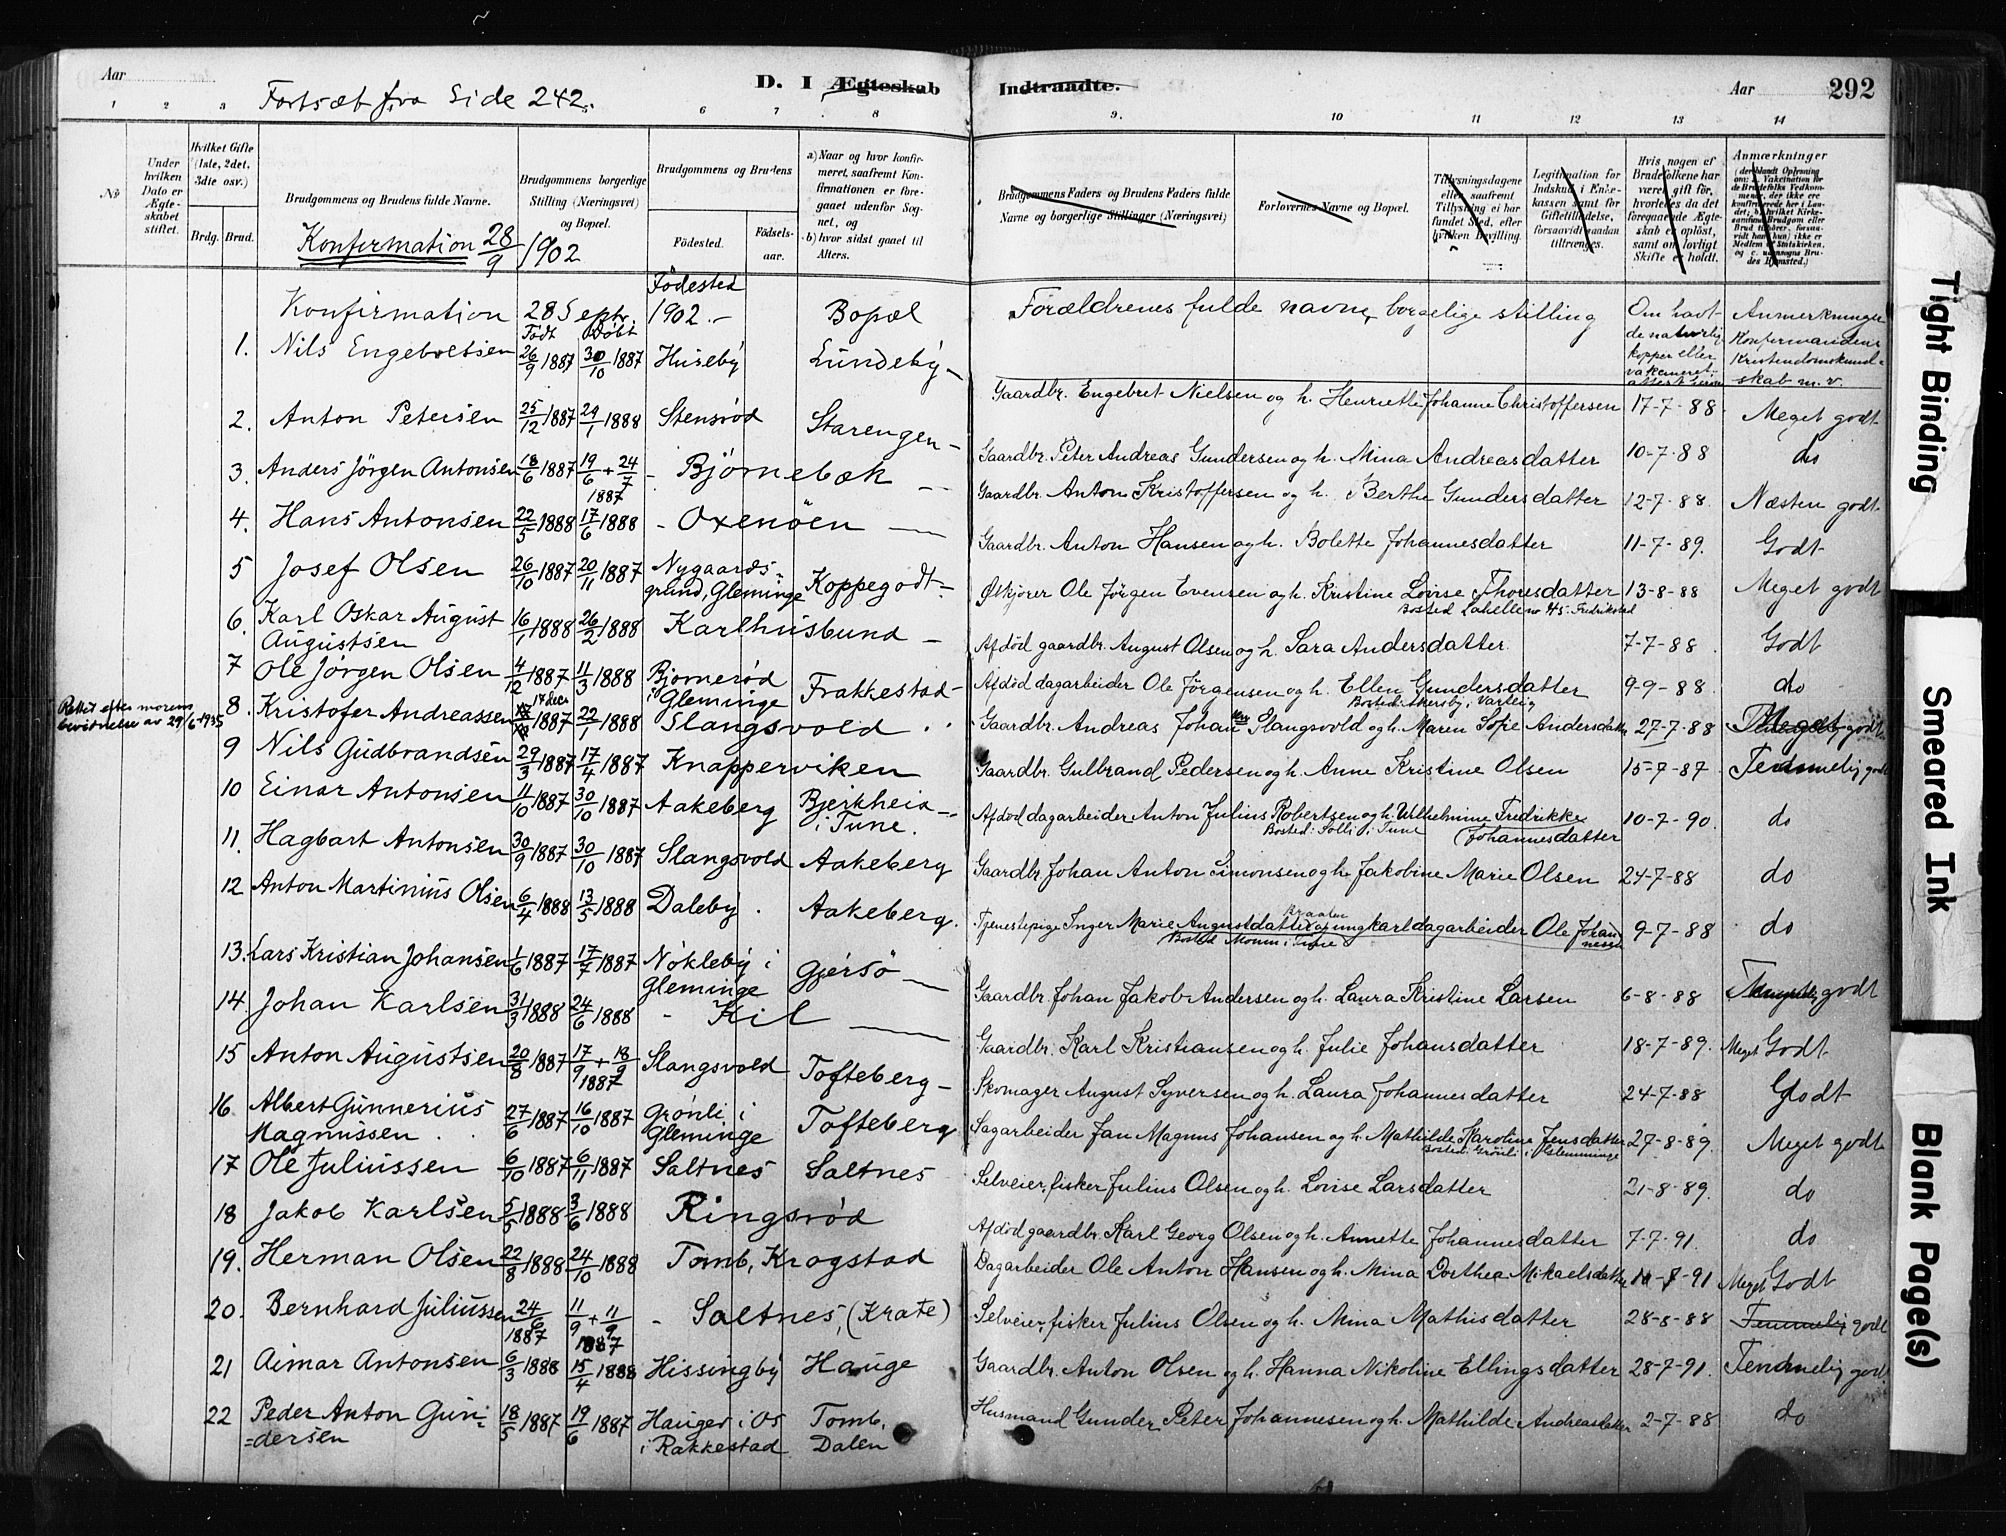 Aar
D. I Ægteskab Indtraadte.
Aar
292
1 2 3 6 7 8 9. 10 11 12 13 14
Fortsæt fra Side 242.
No
Under hvilken Dato er Ægteskabet stiftet.
Hvilket Gifte (1ste, 2det, 3die osv.)
Brdg. Brud.
Brudgommens og Brudens fulde Navne.
Brudgommens borgerlige Stilling (Næringsvei) og Bopæl.
Brudgommens og Brudens
Fødested.
Fødselsaar.
a) Naar og hvor konfirmeret, saafremt Konfirmationen er foregaaet udenfor Sognet, og
b) hvor sidst gaaet til Alters.
Brudgommens Faders og Brudens Faders fulde Navne og borgerlige Stillinger (Næringsvei)
Forlovernes Navne og Bopæl.
Tillysningsdagene eller saafremt Tillysning ei har fundet Sted, efter hvilken Bevilling.
Legitimation for Indskud i Enkekassen samt for Giftetilladelse, forsaavidt saadan tiltrænges.
Hvis nogen af Brudefolkene har været gift før, hvorledes da det foregaaende Ægteskab er opløst, samt om lovligt Skifte er holdt.
Anmærkninger
Konfirmation 28/9 1902
Konfirmation 28 Septr. 1902.- Fødested Bopæl Forældrenes fulde navne, borgelige stilling
Født Døbt
Om havt de naturlig kopper eller vakcineret:
Anmerkninger Konfirmandens Kristendomskundskab m.v.
1. Nils Engebretsen 26/9 1887 30/10 1887 Huseby Lundeby - Gaardbr. Engebret Nielsen og h. Henriette Johanne Christoffersen 17-7-88 Meget godt
2. Anton Petersen 25/12 1887 29/1 1888 Stensrød Starengen - Gaardbr. Peter Andreas Gundersen og h. Mina Andreasdatter 10-7-88 do
3. Anders Jörgen Antonsen 18/6 1887 19/6 + 24/7 1887 - Bjørnebæk - Gaardbr. Anton Kristoffersen og h. Berthe Gundersdatter 12-7-88 Næsten godt
4. Hans Antonsen 22/5 1888 17/6 1888 - Oxenöen - Gaardbr. Anton Hansen og h. Bolette Johannesdatter 11-7-89. Godt
5 Josef Olsen 26/10 1887 20/11 1887 Nygaards-grund, Gleminge Koppegodt - Ole Jørgen Evensen og h. Kristine Lovise Thoresdatter 13-8-88 Meget godt
6. Karl Oskar August Augustsen 16/1 1888 26/2 1888 Karlhusbund - Afdöd gaardbr. August Olsen og h. Sara Andersdatter. 7-7-88 Godt
7 Ole Jörgen Olsen 4/12 1887 11/3 1888 Bjørnerød i Gleminge Frakkestad - Afdöd dagarbeider Ole Jørgensen og h. Ellen Gundersdatter 9-9-88 do
Rettet efter morens bevidnelse av 29/6-1935
8. Kristofer Andreassen 17 Decr 1887 22/1 1888 Slangsvold Gaardbr. Andreas Johan Slangsvold og h. Maren Sofie Andersdatter 27-7-88 Meget godt
9 Nils Gudbrandsen 29/3 1887 17/4 1887 Knapperviken Gaardbr. Gulbrand Pedersen og h. Anne Kristine Olsen 15-7-87 Temmelig godt
10 Einar Antonsen 11/10 1887 30/10 1887 Aakeberg Bjerkheia i Tune. Afdöd dagarbeider Anton Julius Robertsen og h. Wilhelmine Fredrikke Johannesdatter 10-7-90. do
Bosted: Solli i Tune
11. Hagbart Antonsen 30/9 1887 30/10 1887 Slangsvold Aakeberg Gaardbr. Johan Anton Simonsen og h. Jakobine Marie Olsen 24-7-88 do
12 Anton Martinius Olsen 6/4 1888 13/5 1888 Daleby. Aakeberg. Tjenestepige Inger Marie Augustdatter og ungkarl dagarbeider Ole Johannesen 9-7-88 do
13. Lars Kristian Johansen 1/6 1887 17/7 1887 Nökleby i Gleminge Gjersö - Gaardbr. Johan Jakob Andersen og h. Laura Kristine Larsen 6-8-88 godt
14. Johan Karlsen 31/3 1888 24/6 1888 - Kil - Gaardbr. Karl Kristiansen og h. Julie Johansdatter 18-7-89. Meget Godt
15 Anton Augustsen 20/8 1887 17/9 + 18/9 1887 Slangsvold Tofteberg - Skomager August Syversen og h. Laura Johannesdatter 24-7-88 Godt
16. Albert Gunnerius Magnussen 27/6 1887 16/10 1887 Grönli i Gleminge Tofteberg Sagarbeider Jan Magnus Johansen og h. Mathilde Karoline Jensdatter 27-8-89. Meget godt
17 Ole Juliussen 6/10 1887 6/11 1887 Saltnes Saltnes Selveier, fisker Julius Olsen og h. Lovise Larsdatter 21-8-89. do
18 Jakob Karlsen 5/5 1888 3/6 1888 Ringsrød Afdöd gaardbr. Karl Georg Olsen og h. Annette Johannesdatter 7-7-91. do
19. Herman Olsen 22/8 1888 24/10 1888 Tomb, Krogstad Dagarbeider Ole Anton Hansen og h. Mina Dorthea Mikaelsdatter -7-91 Meget Godt
20. Bernhard Juliussen 24/6 1887 11/9 + 11/9 1887 - Saltnes, (Krate) Selveier, fisker Julius Olsen og h. Mina Mathisdatter 28-8-88 Temmelig godt
21 Aimar Antonsen 6/3 1888 15/4 1888 Hissingby Hauge Gaardbr. Anton Olsen og h. Hanna Nikoline Ellingsdatter 28-7-91. Temmelig godt
22 Peder Anton Gundersen 18/5 1887 19/6 1887 Hauger i Os i Rakkestad Tomb, Dalen Husmand Gunder Peter Johannesen og h. Mathilde Andreasdatter 2-7-88 do
Tight Binding
Smeared Ink
Blank Page(s)